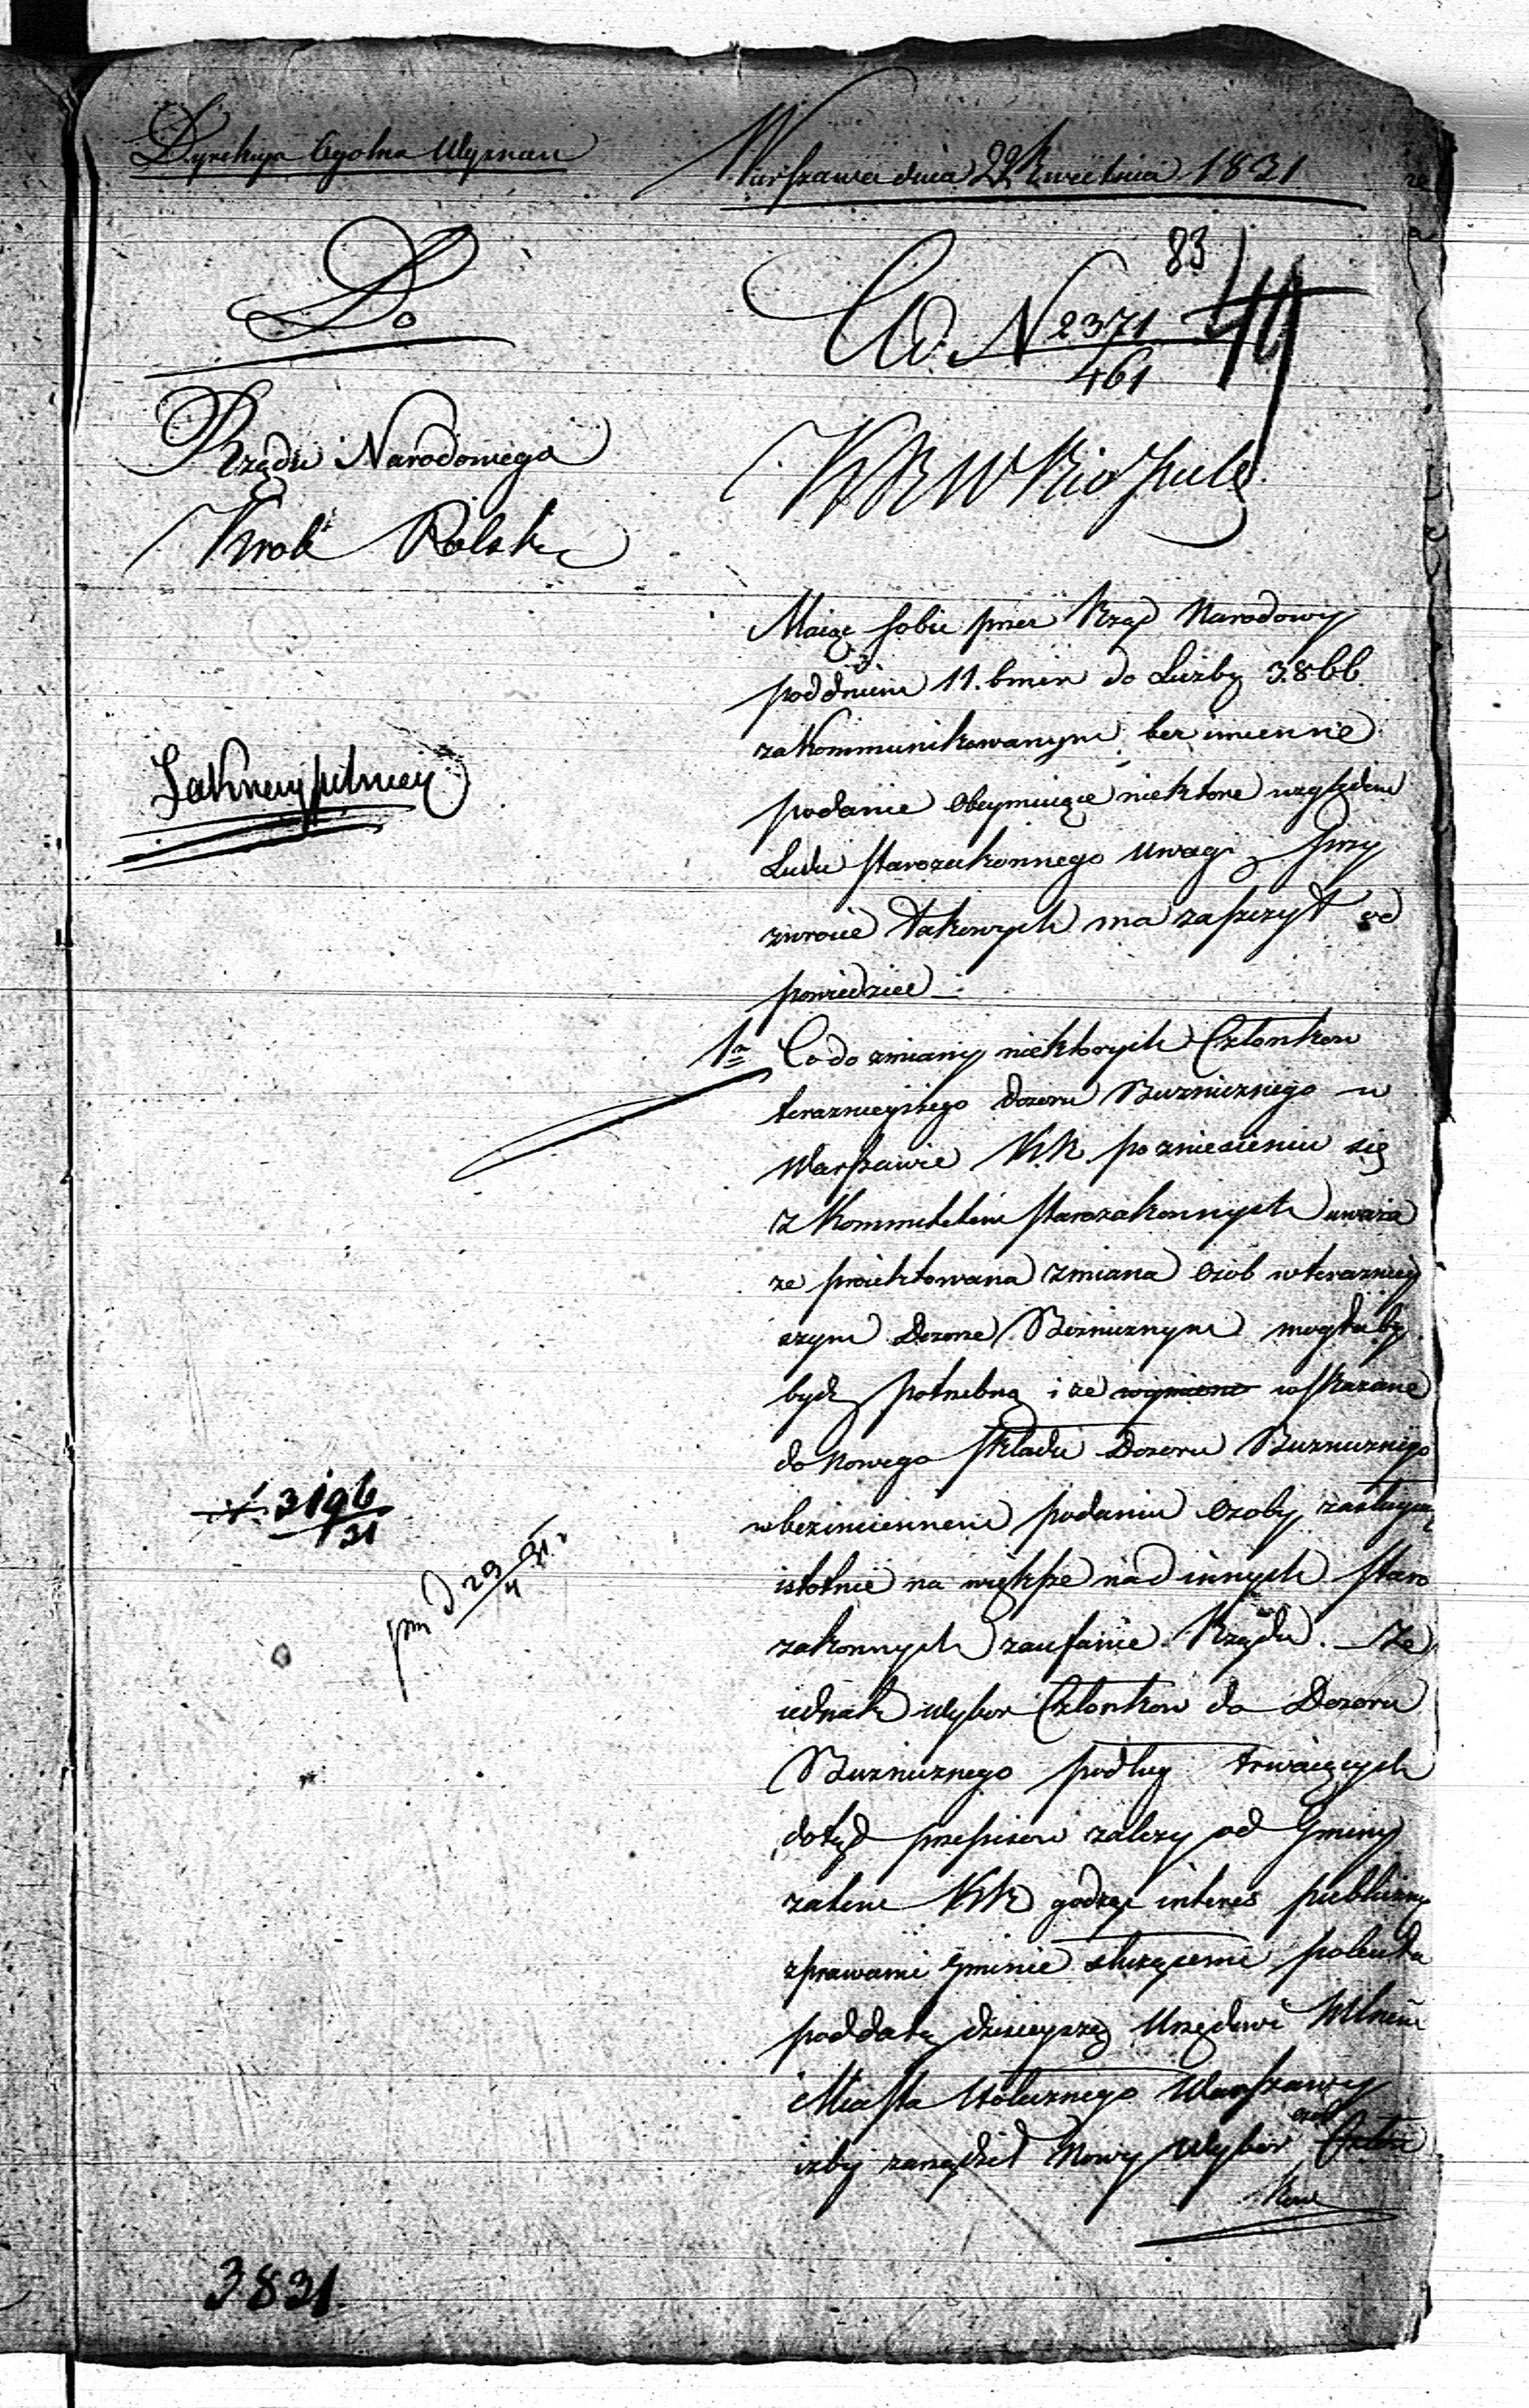 Dyrekcya Ogolna Wyznań
Warszawa dnia 22 Kwietnia 1831
83
Do
Ad N 2371/461
49
Rządu Narodowego
Krol: Polsk:
K R W R i O Publ:
Maiąc sobie przez Rząd Narodowy
pod dniem 11. b m i r do Liczby 3866
zakommunikowanym bezimienne
podanie obeymuiące niektóre względem
Ludu starozakonnego uwagi, przy
zwrocie takowych ma zaszczyt od
powiedzieć
1º Co do zmiany niektorych Członkow
teraznieyszego Dozoru Bużnicznego w
Warszawie K.R. po zniesieniu się
z Kommitetem starozakonnych uważa
że proiektowana zmiana osób w terazniey
szym Dozorze Bóżnicznym mogłaby
bydź potrzebną i że wskazane
do nowego składu Dozoru Bużnicznego
w bezimiennem podaniu osoby zasługuią
istotnie na większe nad innych staro
zakonnych zaufanie Rządu. Że
iednak wybor Członkow do Dozoru
Bużnicznego podług trwaiących
dotąd przepisow zależy od Gminy
zatem KR godząc interes publiczny
z prawami Gminie służącemi poleciła
pod datą dzisieyszą Urzędowi Mun:
Miasta Stołecznego Warszawy
iżby zarządził nowy wybór osób Człon
kow
N. 3196/31
29/4 31
3831